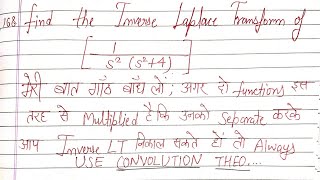 168 find the Inverse Laplace Transform of
[1/(s² (s²+4))]
मेरी बात गाँठ बाँध लो; अगर दो functions इस
तरह से Multiplied है कि उनको Separate करके
आप Inverse LT निकाल सकते हो तो Always
USE CONVOLUTION THEO....